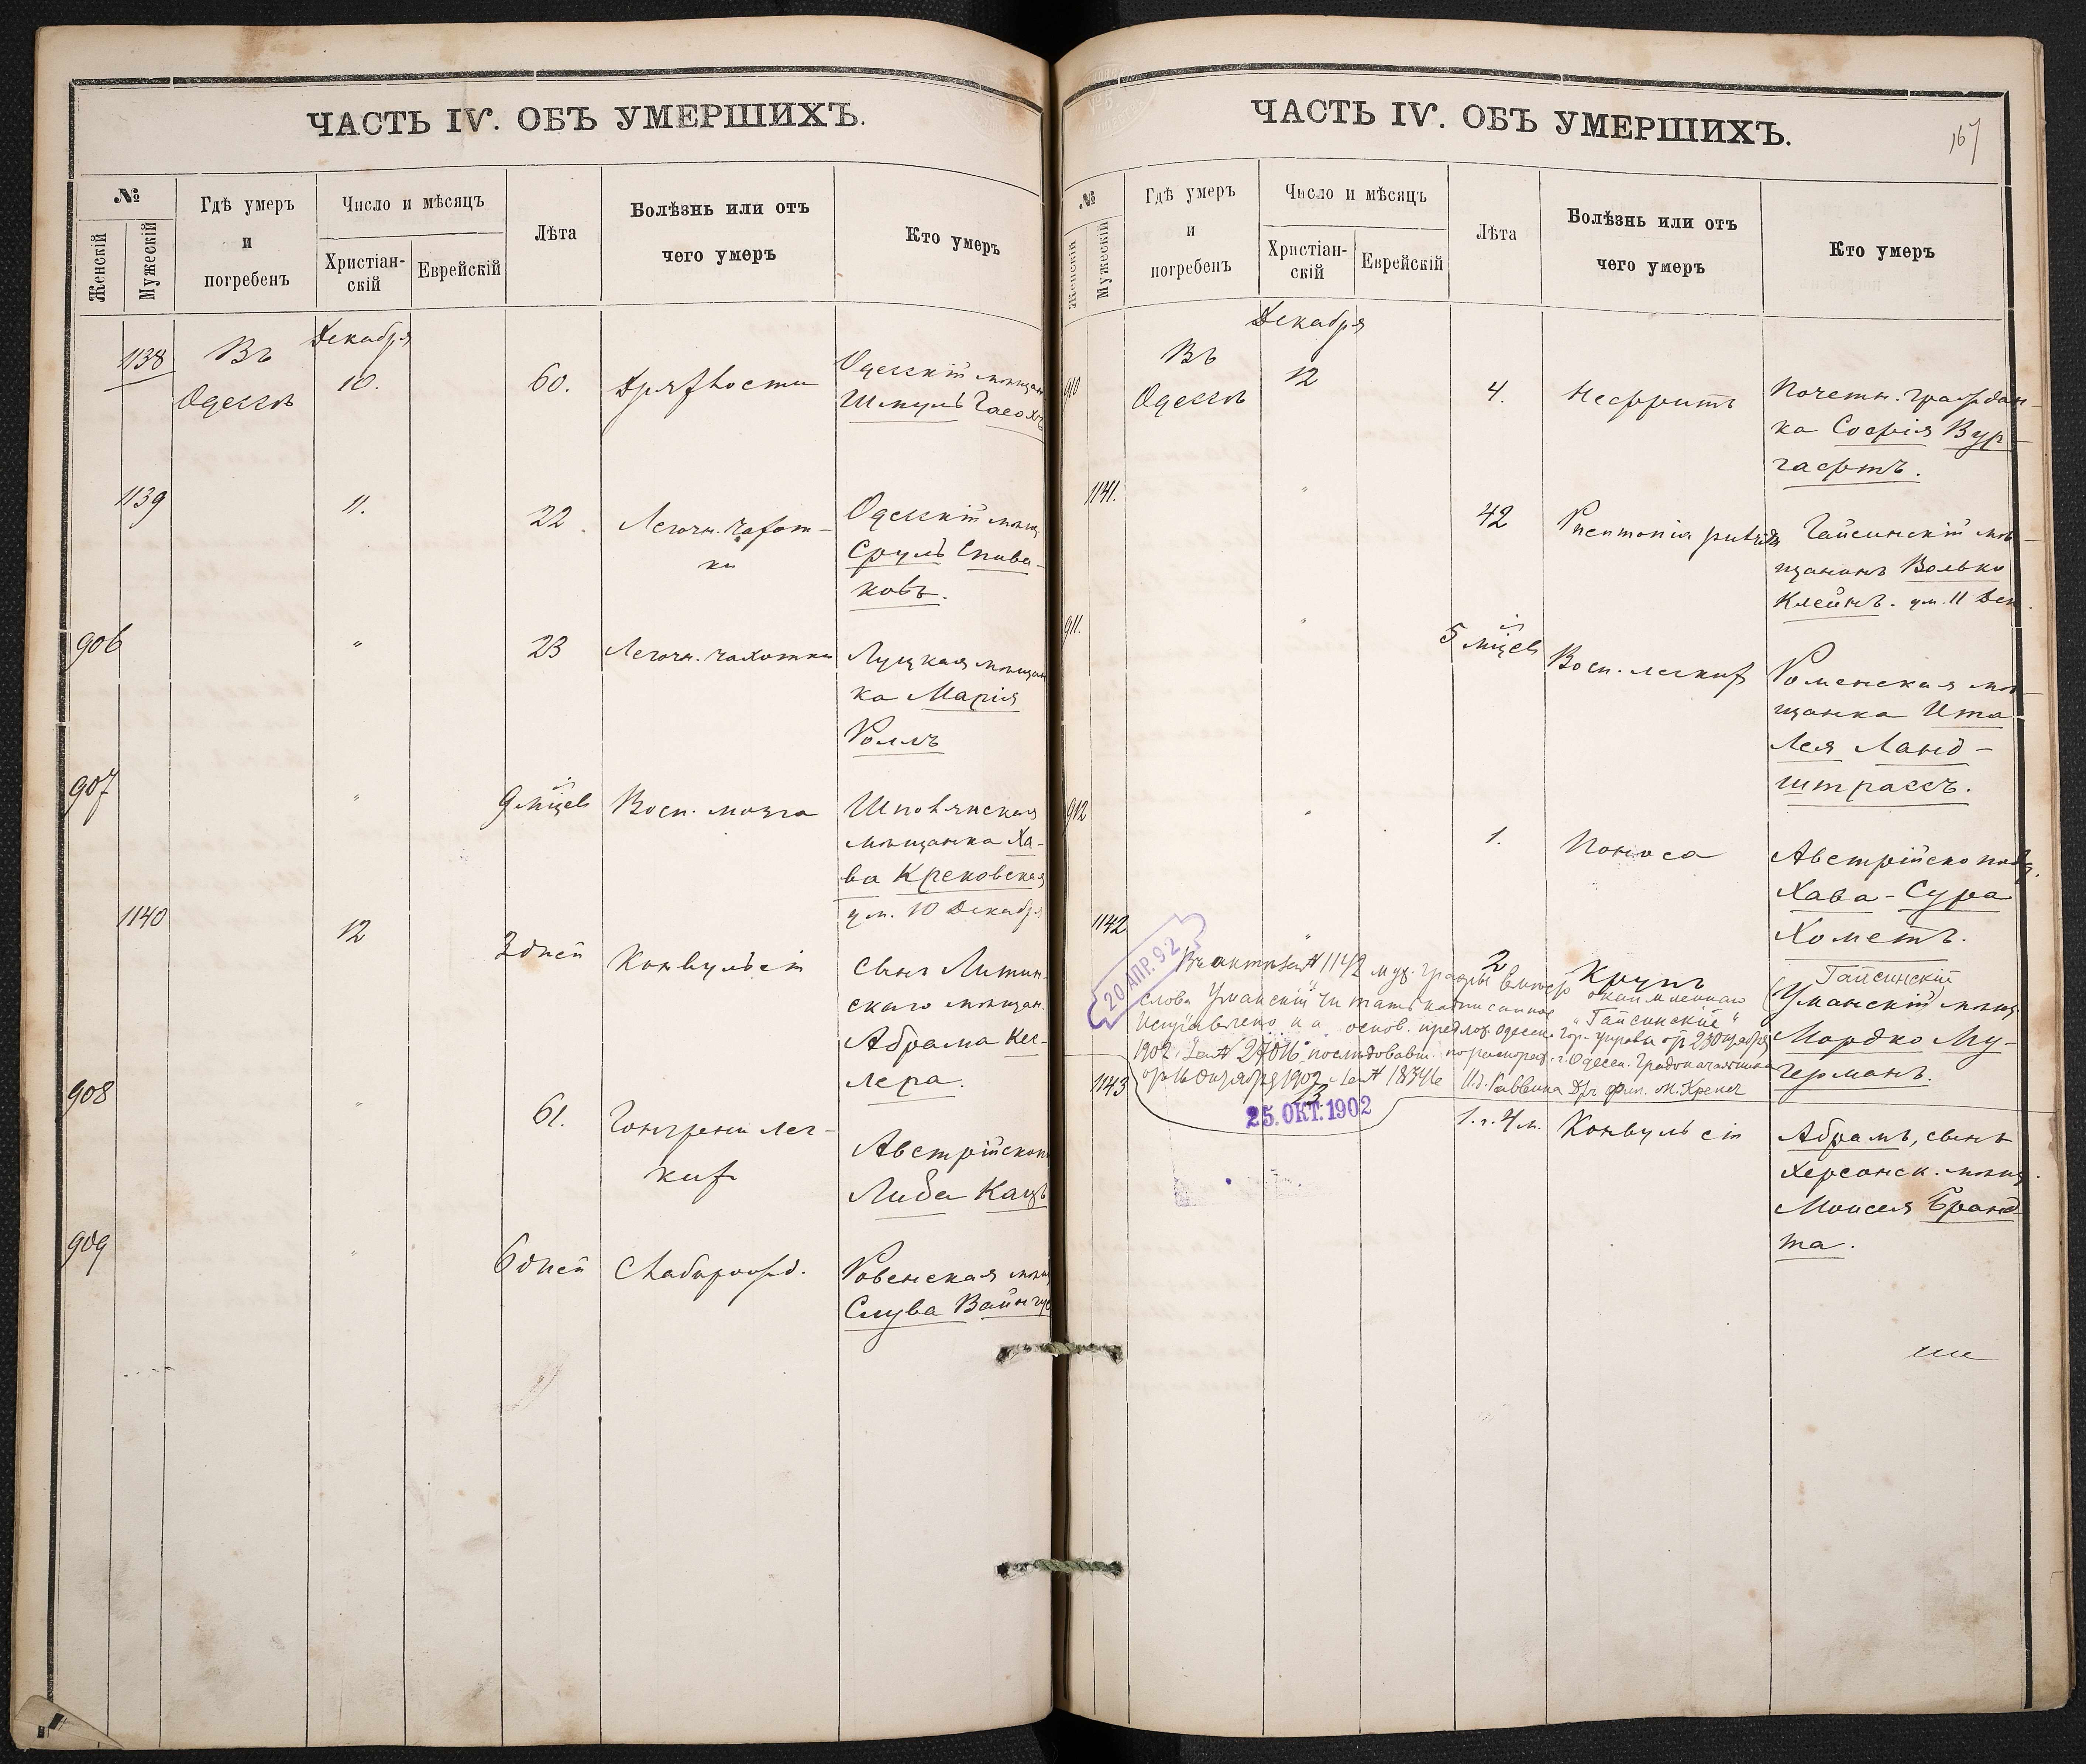 ЧАСТЬ IV. ОБЪ УМЕРШИХЪ.
№
Женскій
Мужескій
Гдѣ умеръ
и
погребенъ
Число и мѣсяцъ
Христіан-
скій
Еврейскій
Лѣта
Болѣзнь или отъ
чего умеръ
Кто умеръ
1138
Въ
Одессѣ
Декабря
10.
60.
Дряхлости
Одесскій мѣщан
Шмуль Часохъ
1139
11.
22.
Легочн. чахот-
ки
Одесскій мѣщ.
Сруль Спива-
ковъ.
906
"
23
Легочн. чахотки
Луцкая мѣщан
ка Марія
Роллъ
907
"
9 мѣцев
Восп. мозга
Шполянская
мѣщанка Ха-
ва Крековская
ум. 10 Декабр
1140
12
3 дней
Конвульсіи
сынъ Литин-
скаго мѣщан.
Абрама Кес-
лера.
908
"
61.
Гангрени лег-
ких
Австрійскоп
Либа Кацъ
909
"
6 дней
Слаборожд.
Ровенская мѣщ
Слува Вайнгу
ЧАСТЬ IV. ОБЪ УМЕРШИХЪ.
167
№
Женскій
Мужескій
Гдѣ умеръ
и
погребенъ
Число и мѣсяцъ
Христіан-
скій
Еврейскій
Лѣта
Болѣзнь или отъ
чего умеръ
Кто умеръ
910
Въ
Одессѣ
Декабря
12
4.
Нефритъ
Почетн. граждан-
ка Софія Вур-
гафтъ.
1141.
"
42
Pneumonia putrida
Гайсинскій мѣ-
щанинъ Волько
Клейнъ. ум. 11 Дек.
911.
"
5 мѣцев
Восп. легких
Роменская мѣ-
щанка Ита
Лея Ланд-
штрассъ.
912
"
1.
Поноса
Австрійско подд.
Хава-Сура
Хометъ.
1142
"
2
Крупъ
Гайсинскій
(Уманскій) мѣщ.
Мордко Му-
черманъ.
20 АПР. 92
Въ актѣ за № 1142 муж. графы вмѣсто окаймленнаго
слова "Уманскій" читать надписанное "Гайсинскій"
Исправлено на основ. предлож. Одесск. Гор. Управы от 23 Октября
1902 г. за № 27016, последовавш. по распоряж. г. Одесск. Градоначальника
от 16 Октября 1902 г. за № 18346 И.д. Раввина Др. фил. М. Крепс
25. ОКТ. 1902
1143
13
1. г. 4 м.
Конвульсіи
Абрамъ, сынъ
Херсонск. мѣщ.
Моисея Бранд-
та.